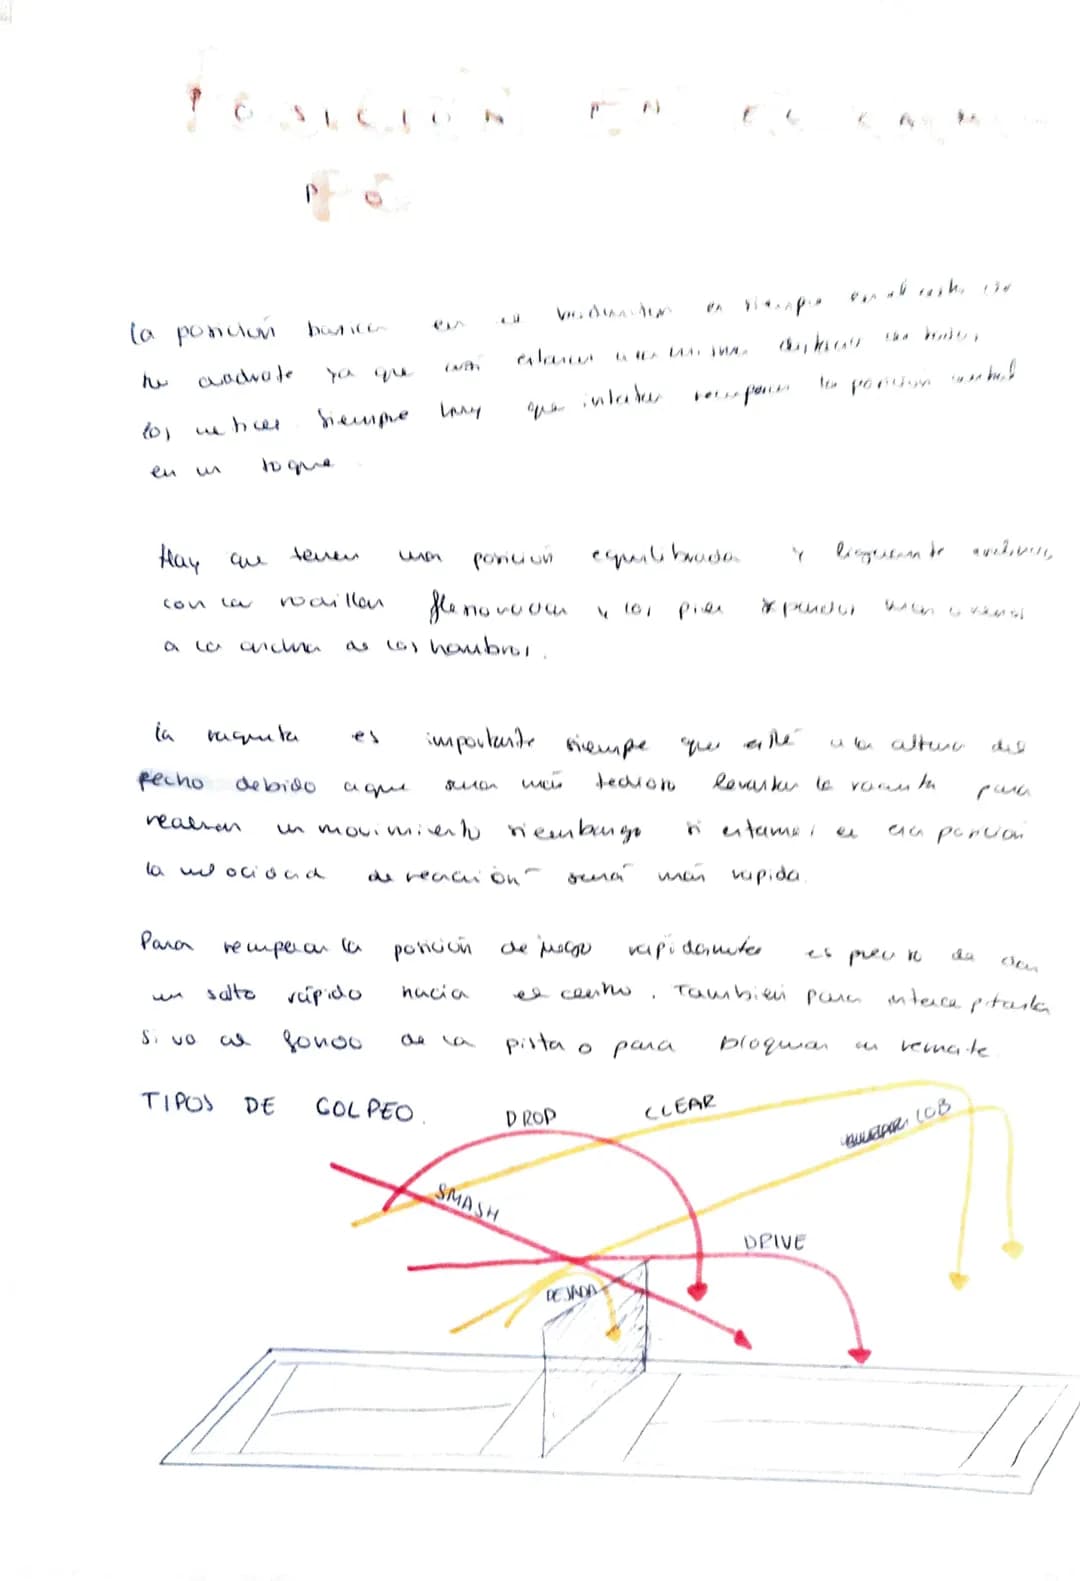 POSICIÓN EN EL CAM
PO
la posición basica en el badminton es siempre en el centro
ya que así estamos a la misma distancia de todos
los vertices. Siempre hay que intentar recuperar la posición central
en un toque.
Hay que tener una posición equilibrada y
con las rodillas flexionadas y los pies
a la anchura de los hombros.
la raqueta es importante siempre que esté a la altura del
pecho debido a que será más tedioso levantar la raqueta para
realizar un movimiento siembargo si estamos en esa posición
la velocidad de reacción será más rapida.
Para recuperar la posición de juego rapidamente es preciso de dar
un salto rápido hacia el centro. También para interceptarla
si va al fondo de la pista o para bloquear un remate
TIPOS DE GOLPEO.
DROP
CLEAR
LOB
SMASH
DRIVE
DEJADA